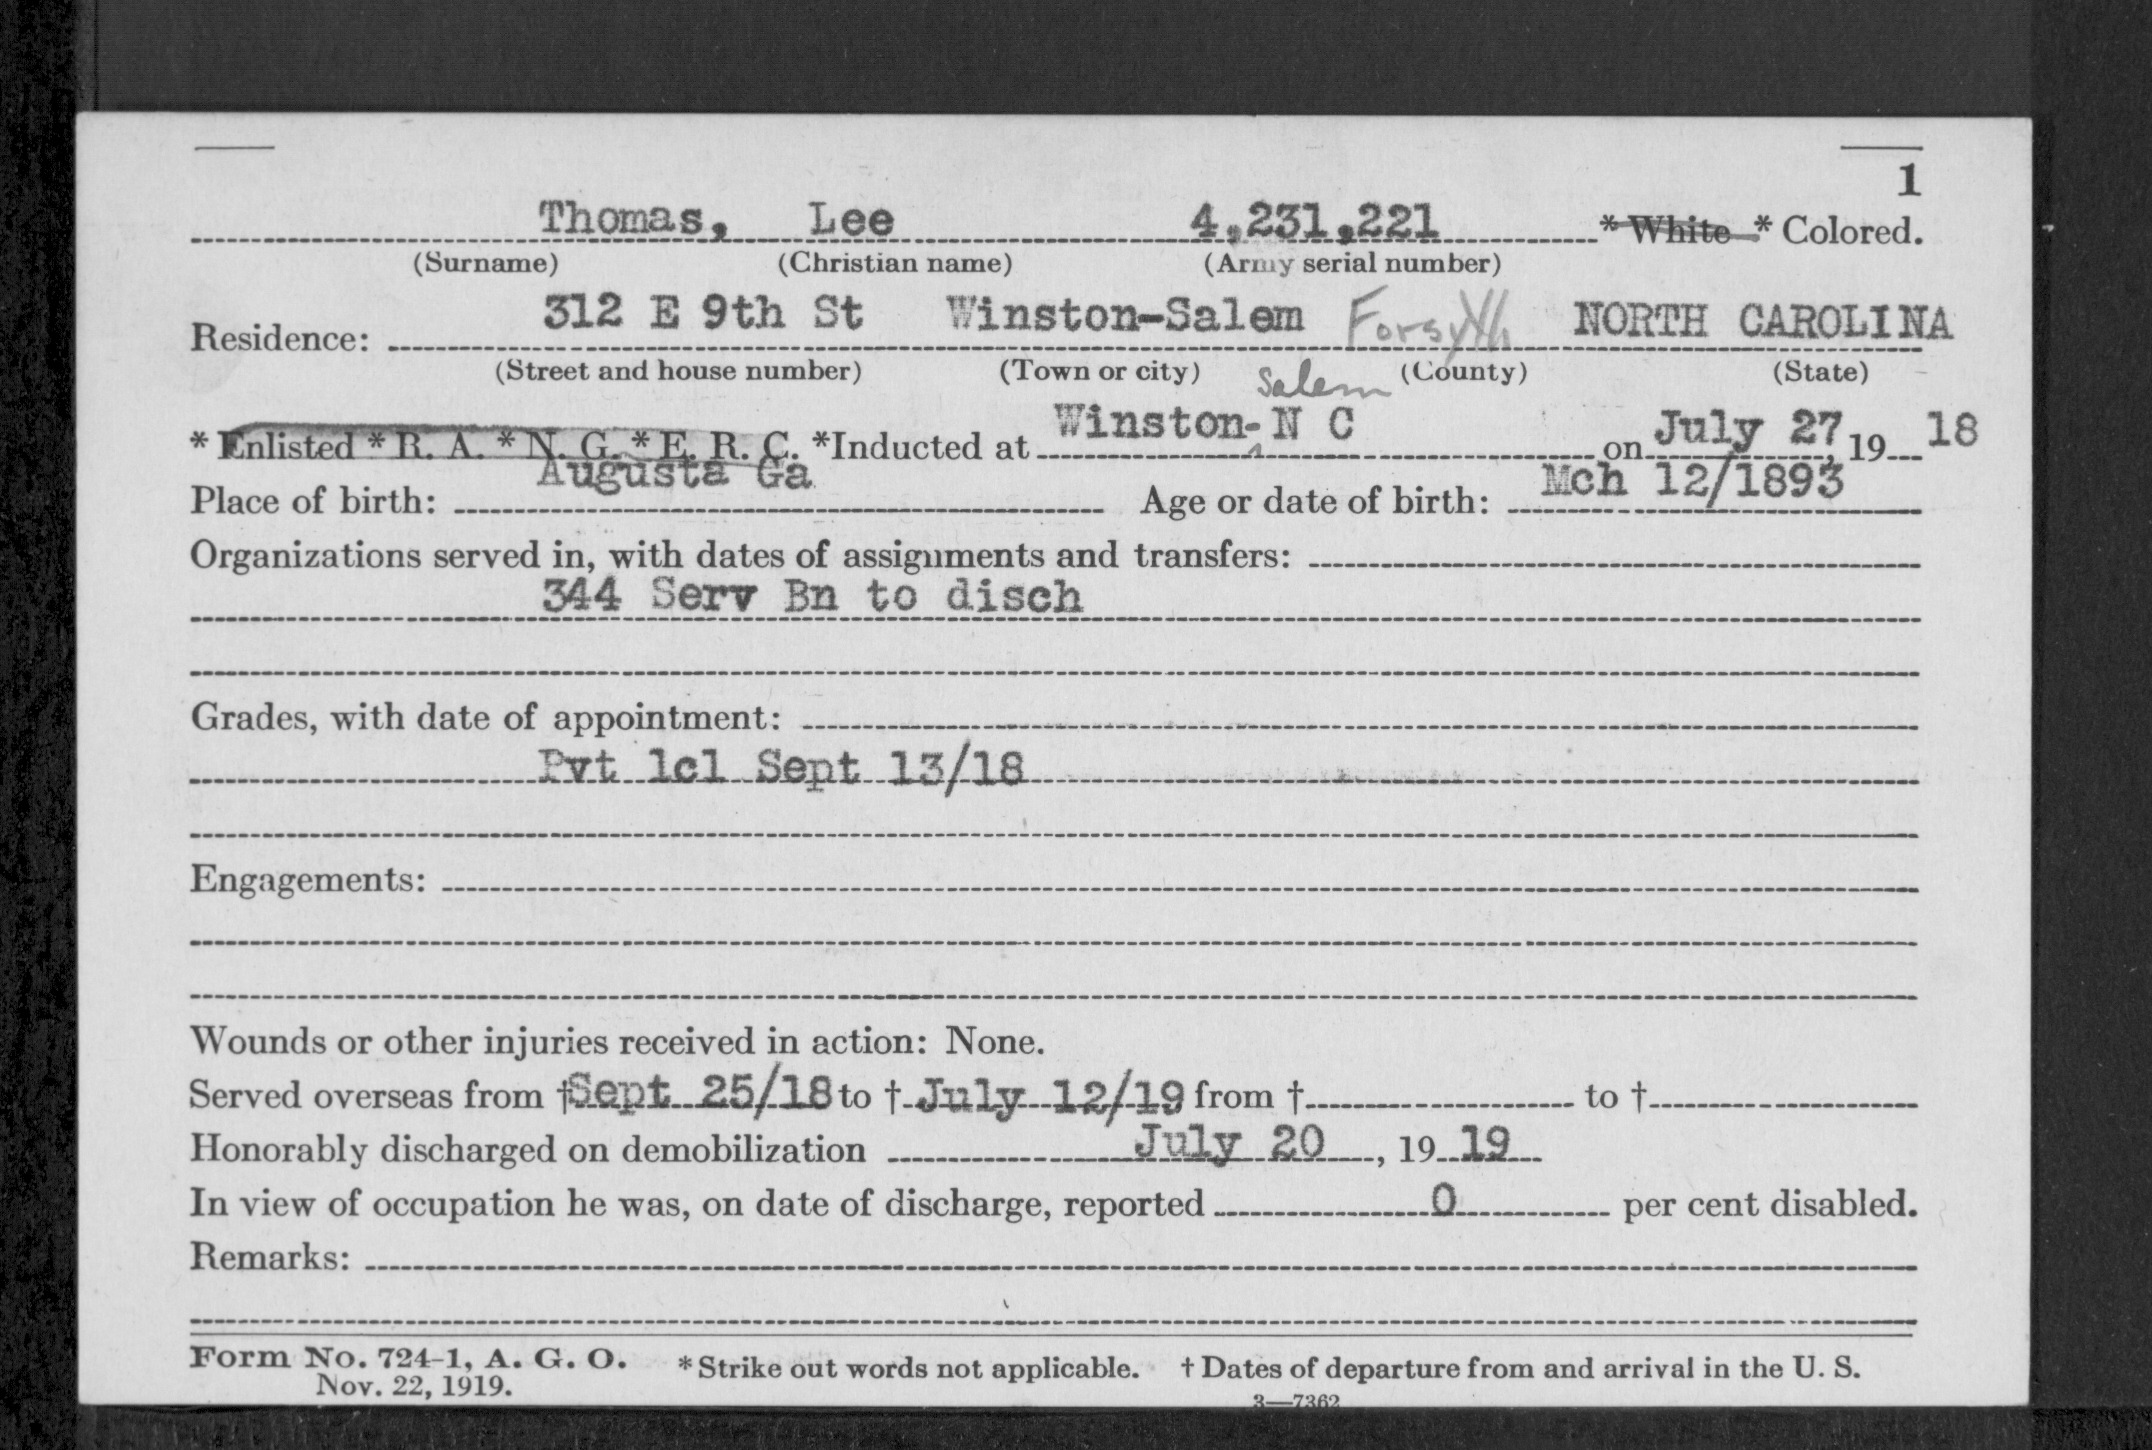 1
Thomas, Lee 4,231,221 * White * Colored.
(Surname) (Christian name) (Army serial number)
Residence: 312 E 9th St Winston-Salem Forsyth NORTH CAROLINA
(Street and house number) (Town or city) (County) (State)
Salem
* Enlisted * R. A. * N. G. * E. R. C. *Inducted at Winston- N C on July 27, 19 18
Place of birth: Augusta Ga Age or date of birth: Mch 12/1893
Organizations served in, with dates of assignments and transfers:
344 Serv Bn to disch
Grades, with date of appointment:
Pvt 1cl Sept 13/18
Engagements:
Wounds or other injuries received in action: None.
Served overseas from † Sept 25/18 to † July 12/19 from † to †
Honorably discharged on demobilization July 20, 19 19
In view of occupation he was, on date of discharge, reported 0 per cent disabled.
Remarks:
Form No. 724-1, A. G. O. * Strike out words not applicable. † Dates of departure from and arrival in the U. S.
Nov. 22, 1919.
3—7362